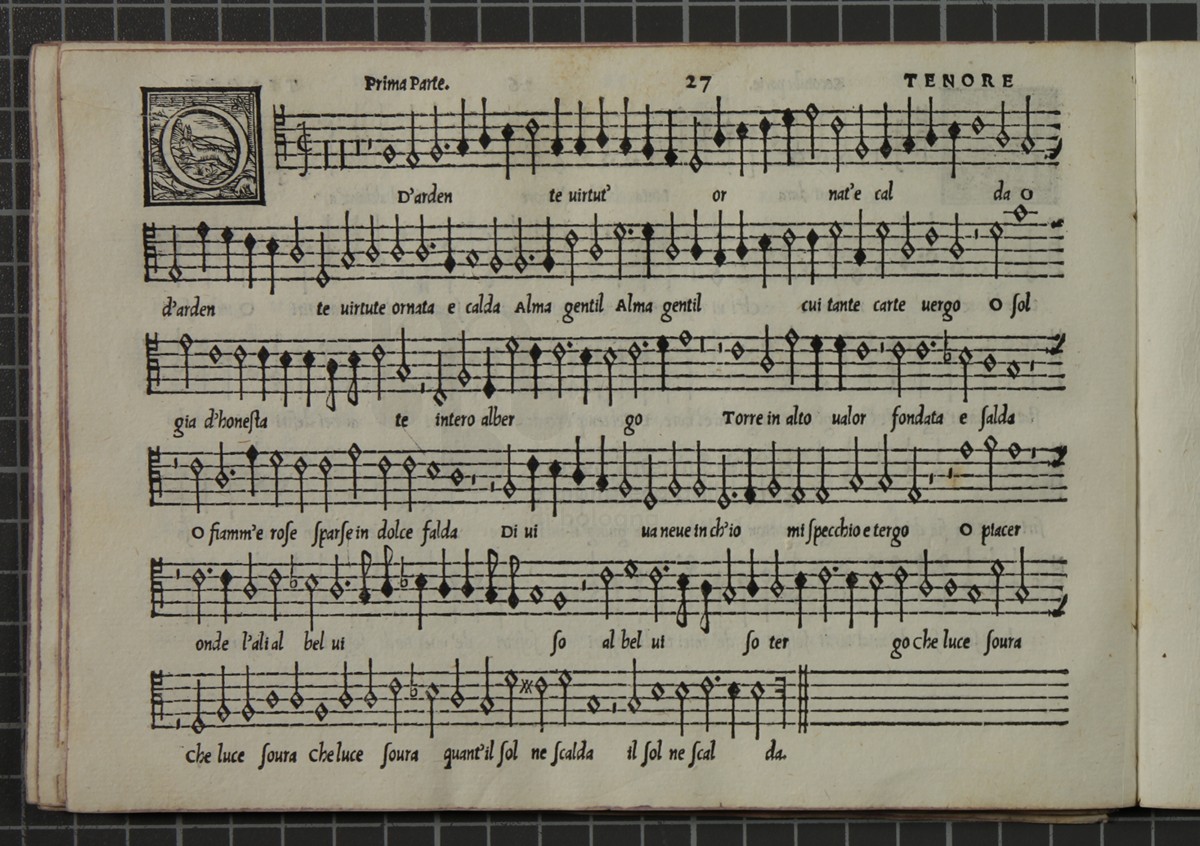 Prima Parte. 27 TENORE
O D'arden te uirtut' or nat'e cal da O
d'arden te uirtute ornata e calda Alma gentil Alma gentil cui tante carte uergo O ſol
gia d'honeſta te intero alber go Torre in alto ualor fondata e ſalda
O fiamm'e roſe ſparſe in dolce falda Di ui ua neue in ch'io mi ſpecchio e tergo O piacer
onde l'ali al bel ui ſo al bel ui ſo ter go che luce ſoura
che luce ſoura che luce ſoura quant'il ſol ne ſcalda il ſol ne ſcal da.